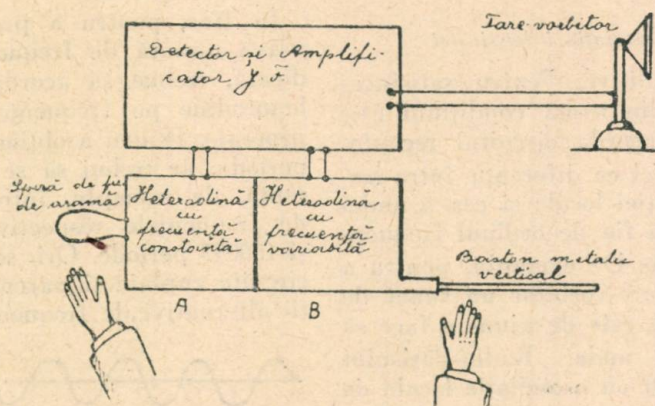 Tare-vorbitor
Detector și Amplifi-
cator J. F.
Spiră de fir
de aramă
Heterodină
cu
frecuență
constantă
Heterodină
cu
frecuență
variabilă
Baston metalic
vertical
A
B